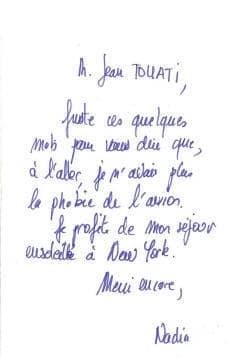 M. Jean TOUATI,
Juste ces quelques
mots pour vous dire que,
à l'aller, je n'avais plus
la phobie de l'avion.
Je profite de mon séjour
ensoleillé à New York.
Merci encore,
Nadia